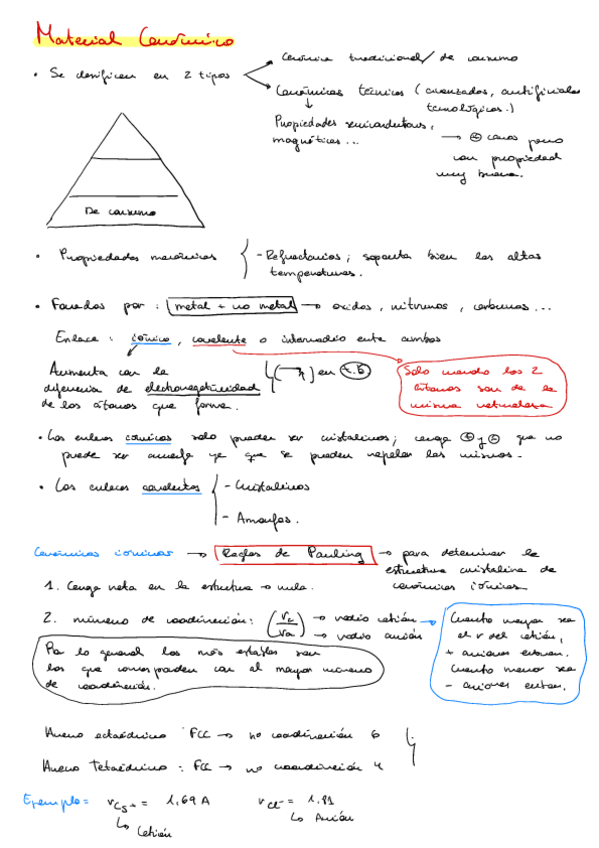 Material Cerámico
• Se clasifican en 2 tipos
Cerámica tradicional / de consumo
Cerámicas técnicas (avanzadas, artificiales
tecnológicas.)
Propiedades semiconductoras,
magnéticas...
→ ⊕ caras pero
con propiedad
muy buena.
De consumo
• Propiedades mecánicas
- Refractarios; soporta bien las altas
temperaturas.
• Formados por: metal + no metal → óxidos, nitruros, carburos...
Enlace: iónico, covalente o intermedio entre ambos
Aumenta con la
diferencia de electronegatividad
de los átomos que forma.
en t.p
Solo cuando los 2
átomos son de la
misma naturaleza
• Los enlaces iónicos solo pueden ser cristalinos; carga ⊕ y ⊖ que no
puede ser amorfa ya que se pueden repeler las mismos.
• Los enlaces covalentes
- Cristalinos
- Amorfos.
Cerámicas iónicas → Reglas de Pauling → para determinar la
estructura cristalina de
cerámicas iónicas
1. Carga neta en la estructura → nula.
2. número de coordinación: (rc/ra) → radio catión
→ radio anión
Cuanto mayor sea
el r del catión,
+ aniones entran.
Cuanto menor sea
- aniones entran.
Por lo general los más estables son
los que corresponden con el mayor número
de coordinación.
Hueco octaédrico FCC → nº coordinación 6
Hueco Tetraédrico: FCC → nº coordinación 4
Ejemplo = rCs+ = 1,69 A rCl- = 1,81
↳ Catión
↳ Anión